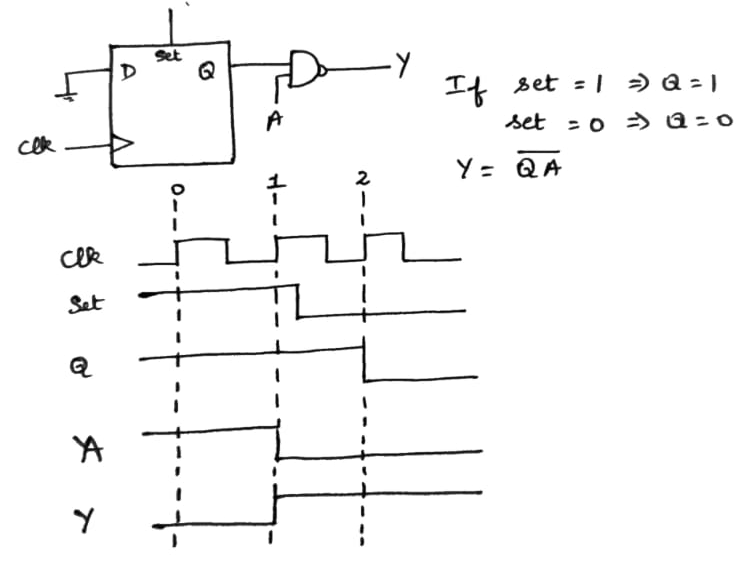 set
D Q
Y
A
Clk
If set = 1 ⇒ Q = 1
set = 0 ⇒ Q = 0
Y = \overline{QA}
0 1 2
Clk
Set
Q
A
Y